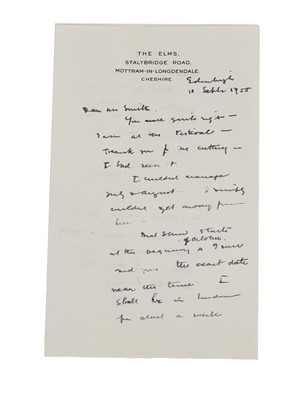 THE ELMS,
STALYBRIDGE ROAD,
MOTTRAM-IN-LONGDENDALE,
CHESHIRE.
Edinburgh
10 Sept 1955
Dear Mr Smith.
You were quite right —
I am at the Festival —
Thank you for the cutting —
I had seen it
I couldn't manage
July & August I simply
couldn't get away from
here —
That Show starts
at the beginning of October
and the exact date
near the time I
shall be in London
for about a week